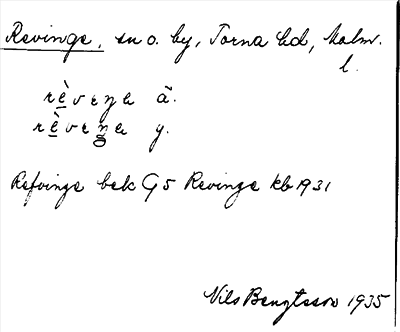 Revinge, sn o. by, Torna hd, Malm.
l.
rèvɛŋɛ ä.
rèvɛŋɛ y.
Refvinge bek G5 Revinge kb 1931
Nils Bengtsson 1935